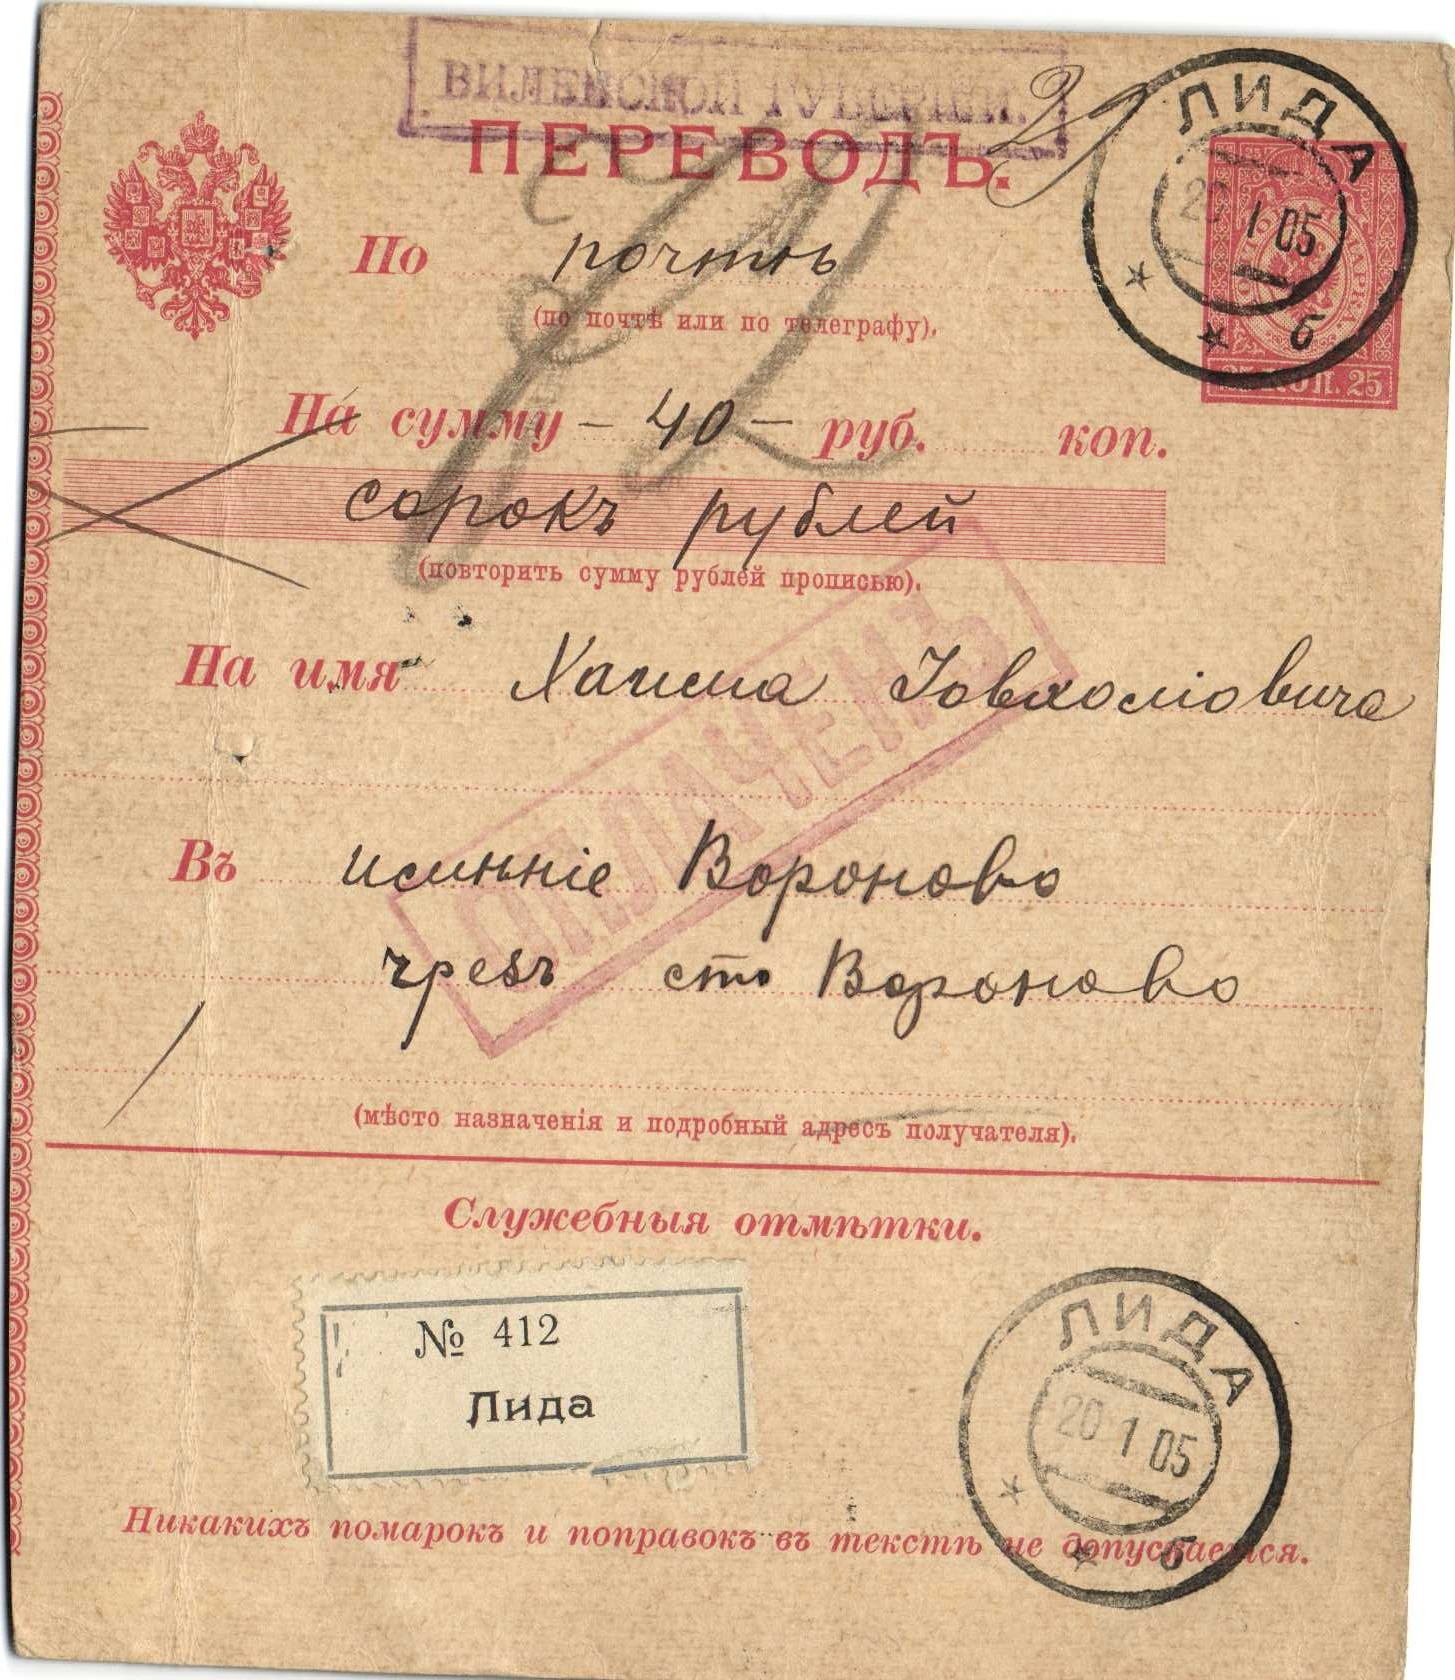 ВИЛЕНСКОЙ ГУБЕРНІИ.
ПЕРЕВОДЪ.
По почтѣ
(по почтѣ или по телеграфу).
ЛИДА
20 1 05
б
25 КОП. 25
На сумму - 40 - руб. коп.
сорокъ рублей
(повторить сумму рублей прописью).
На имя Хаима
ОПЛАЧЕНЪ
Въ имѣніе Вороново
чрезъ ст. Вороново
(мѣсто назначенія и подробный адресъ получателя).
Служебныя отмѣтки.
№ 412
Лида
ЛИДА
20 1 05
б
Никакихъ помарокъ и поправокъ въ текстѣ не допускается.